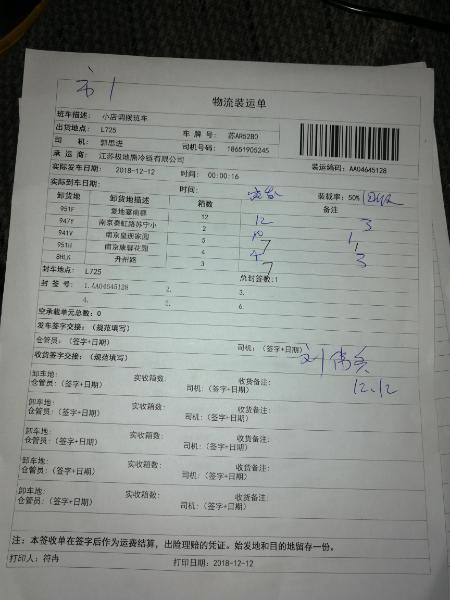 物流装运单
班车描述: 小店调拨班车
出货地点: L725 车 牌 号: 苏AR52B0
司 机: 郭思进 司机号码: 18651905245
承 运 商: 江苏极地熊冷链有限公司 装运编码: AA04645128
实际发车日期: 2018-12-12 时间: 00:00:16
实际到车日期: 时间: 装载率: 50% 回收
卸货地 卸货地描述 箱数 备注
951F 12
947Y 南京秦虹路苏宁小 2 12 3
941V 南京皇册家园 5 1
951U 南京康馨花园 4 7 1
8HLK 丹州路 3 7 3
封车地点: L725 总封签数:1
封 签 号: 1.AA04645128 2. 3.
4. 5. 6.
空承载单元总数: 0
发车签字交接: (规范填写)
仓管员: (签字+日期) 司机: (签字+日期)
收货签字交接: (规范填写)
12.12
卸车地: 实收箱数: 收货备注:
仓管员: (签字+日期) 司机: (签字+日期)
卸车地: 实收箱数: 收货备注:
仓管员: (签字+日期) 司机: (签字+日期)
卸车地: 实收箱数: 收货备注:
仓管员: (签字+日期) 司机: (签字+日期)
卸车地: 实收箱数: 收货备注:
仓管员: (签字+日期) 司机: (签字+日期)
卸车地: 实收箱数: 收货备注:
仓管员: (签字+日期) 司机: (签字+日期)
注: 本签收单在签字后作为运费结算, 出险理赔的凭证。始发地和目的地留存一份。
打印人: 符冉 打印日期: 2018-12-12